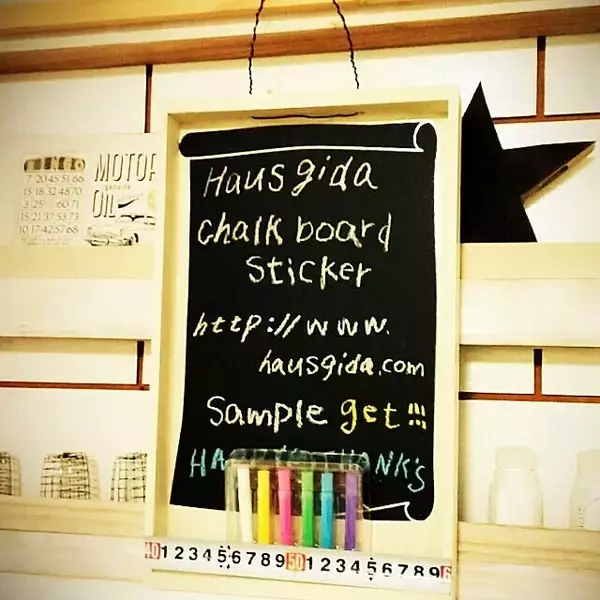 Hausgida
chalk board
Sticker
http://www.
hausgida.com
Sample get!!!
THANK'S
BINGO
7 20 45 51 66
15 18 32 48 70
3 25 60 71
15 21 37 53 73
10 17 42 57 68
MOTOR
genuine
OIL
40 1 2 3 4 5 6 7 8 9 50 1 2 3 4 5 6 7 8 9 6